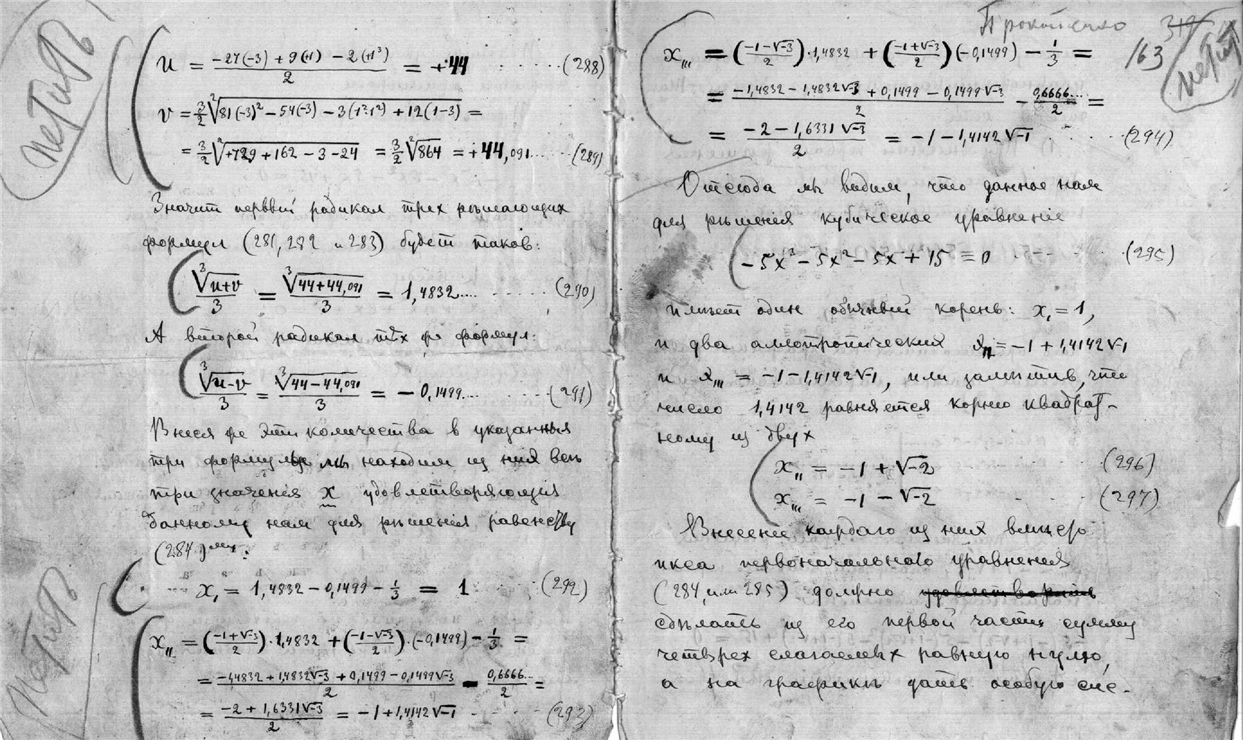 петитъ
u = (-27(-3) + 9(+1) - 2(+1³))/2 = +44 ..... (288)
v = 3/2 √(81(-3)² - 54(-3) - 3(1²·1²) + 12(1-3)) =
= 3/2 √(+729 + 162 - 3 - 24) = 3/2 √864 = +44,091... (289)
Значит первый радикал трех рѣшающих
формул (281, 282 и 283) будет таков:
∛(u+v)/3 = ∛(44+44,091)/3 = 1,4832.... (290)
А второй радикал тѣх же формул:
∛(u-v)/3 = ∛(44-44,091)/3 = -0,1499... (291)
Внеся же эти количества в указанныя
три формулы мы находим из них всѣ
три значенія x удовлетворяющія
данному нам для рѣшенія равенству
(284):
x, = 1,4832 - 0,1499 - 1/3 = 1 (292)
петитъ
x,, = ((-1+√-3)/2)·1,4832 + ((-1-√-3)/2)·(-0,1499) - 1/3 =
= (-1,4832 + 1,4832√-3 + 0,1499 - 0,1499√-3)/2 - 0,6666.../2 =
= (-2 + 1,6331√-3)/2 = -1 + 1,4142√-1 (293)
319
163
петит
x,,, = ((-1-√-3)/2)·1,4832 + ((-1+√-3)/2)(-0,1499) - 1/3 =
= (-1,4832 - 1,4832√-3 + 0,1499 - 0,1499√-3)/2 - 0,6666.../2 =
= (-2 - 1,6331√-3)/2 = -1 - 1,4142√-1 (294)
Отсюда мы видим, что данное нам
для рѣшенія кубическое уравненіе
-5x³ - 5x² - 5x + 15 = 0 (295)
имѣет один обычный корень: x, = 1,
и два аллотропических x,, = -1 + 1,4142√-1
и x,,, = -1 - 1,4142√-1, или замѣтив, что
число 1,4142 равняется корню квадрат-
ному из двух
x,, = -1 + √-2 (296)
x,,, = -1 - √-2 (297)
Внесеніе каждаго из них вмѣсто
икса первоначальнаго уравненія
(284, или 285) должно
сдѣлать из его первой части сумму
четырех слагаемых равную нулю,
а на графикѣ дать особую сис-